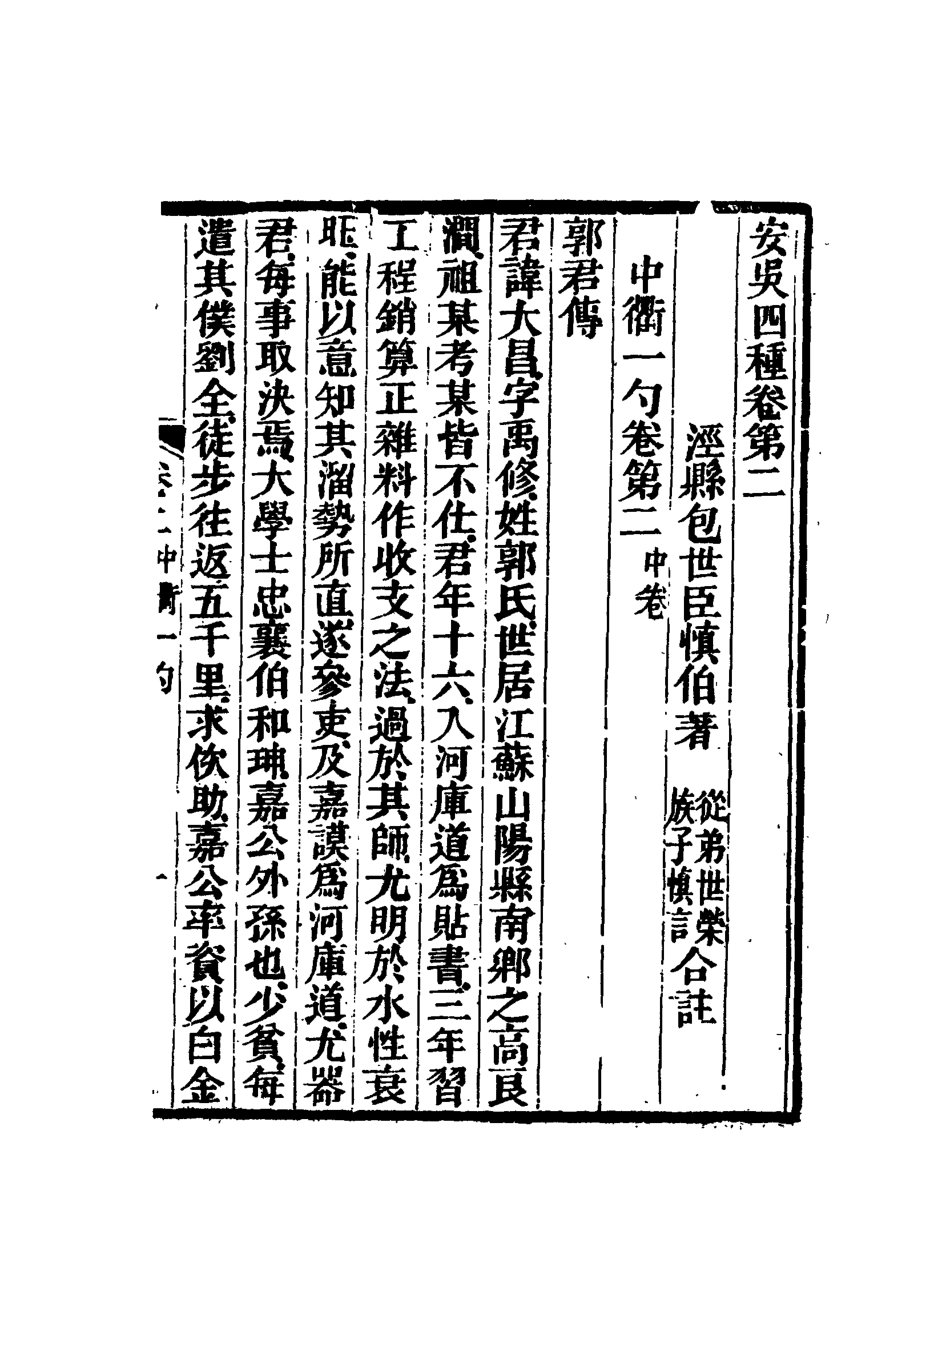 安吳四種卷第二
涇縣包世臣愼伯著 從弟世榮 族子愼言 合註
中衢一勺卷第二 中卷
郭君傳
君諱大昌字禹修姓郭氏世居江蘇山陽縣南鄉之高良
澗祖某考某皆不仕君年十六入河庫道爲貼書三年習
工程銷算正雜料作收支之法過於其師尤明於水性衰
旺能以意知其溜勢所直遂參吏及嘉謨爲河庫道尤器
君每事取決焉大學士忠襄伯和珅嘉公外孫也少貧每
遣其僕劉全徒步往返五千里求佽助嘉公率資以白金
卷二中衢一勺 一